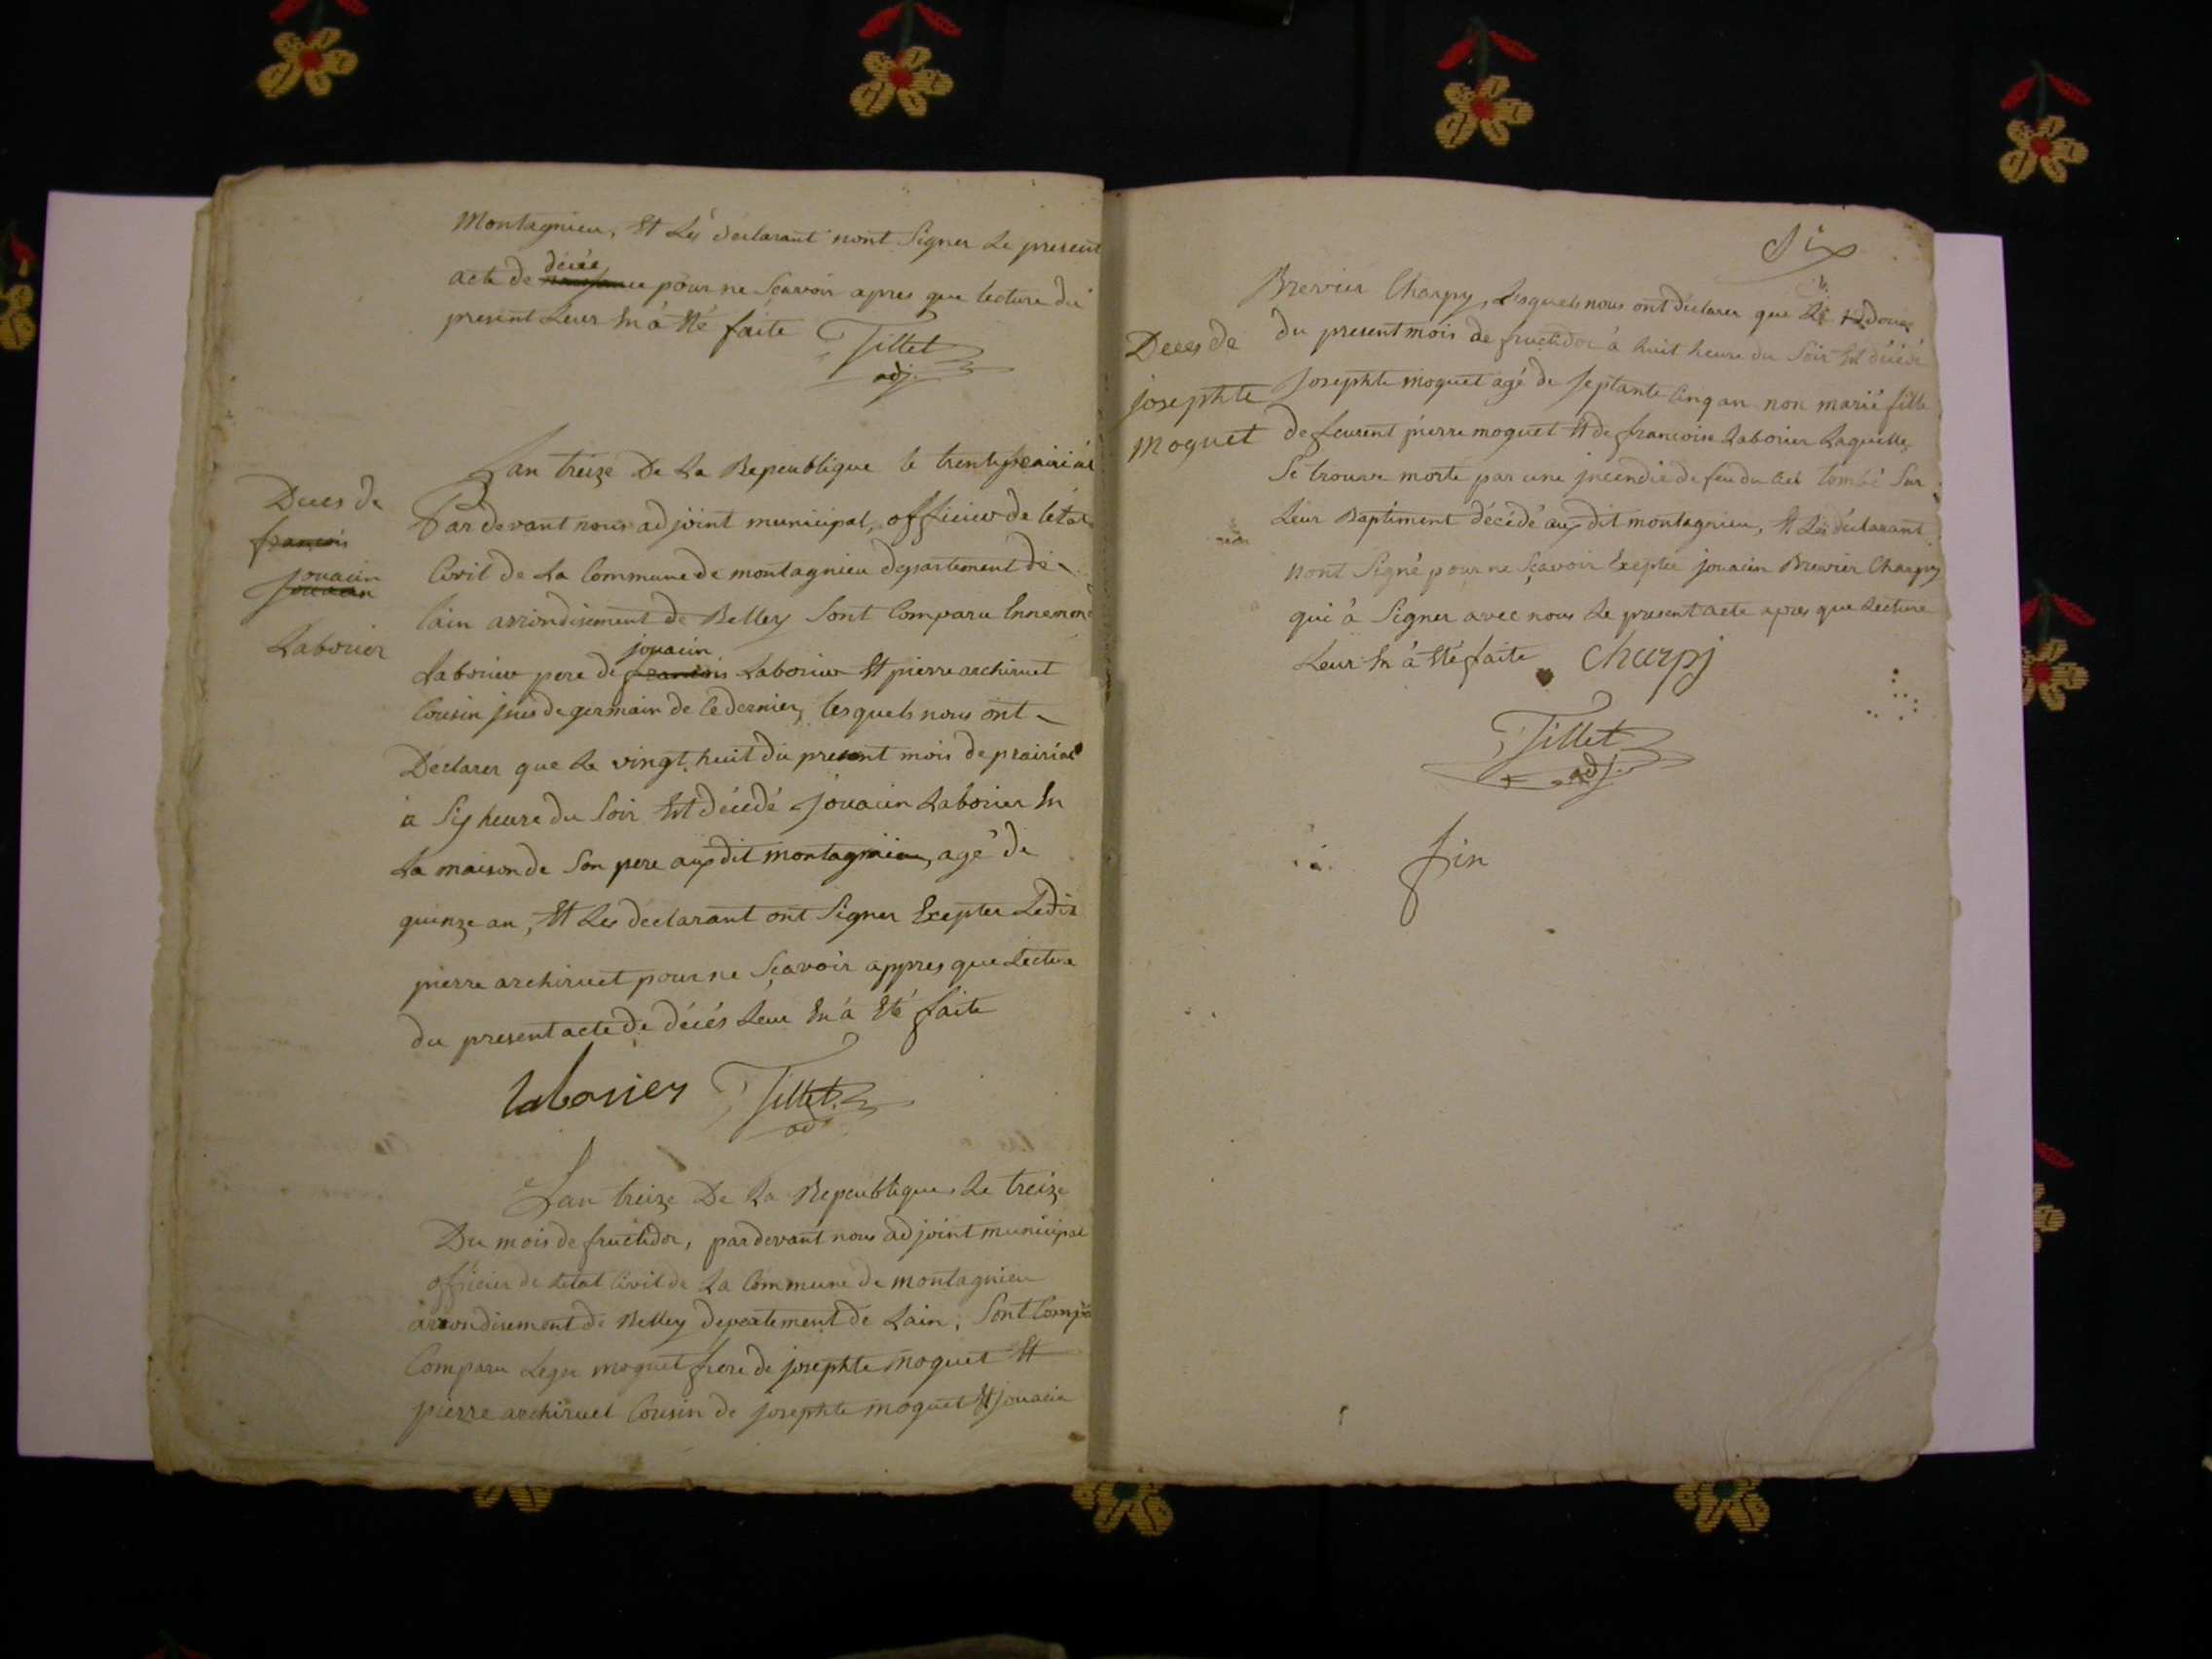 Montagnieu, Et Les déclarant nont Signer Le present
acte de décés pour ne Scavoir apres que lecture du
present Leur En à Eté faite Tillet
adj.
Dues de
françois
jouacin
Laborier
Lan treize De La Republique le trente prairial
Pardevant nous adjoint municipal, officier de létat
Civil de La Commune de montagnieu departement de
lain arrondisement de Belley Sont Comparu Innemon
Laborier pere de françois jouacin Laborier Et pierre archiruet
Cousin jsus de germain de Ce dernier, lesquels nous ont
Déclarer que Le vingt huit du present mois de prairial
à Six heure du Soir Est décédé jouacin Laborier En
La maison de Son pere aux dit montagnieu, agé de
quinze an, Et Les déclarant ont Signer Excepter Ledit
pierre archiruet pour ne Sçavoir appres que Lecture
du present acte de décés Leur En à Eté faite
laborier Tillet
ad
Lan treize De La Republique, Le treize
Du mois de fructidor, pardevant nous adjoint municipal
officier de Letat Civil de La Commune de montagnieu
arrondisement de Belley departement de Lain, Sont Compa
Comparu Leger moguet frere de josephte moguet Et
pierre archiruet Cousin de josephte moguet Et jouacin
Six
Brevier Charpy, Lesquels nous ont déclarer que Le 12 douze
Deces de
josephte
Moguet
du present mois de fructidor à huit heure du Soir Est décédé
Josephte moguet agé de septante Cinq an non marié fille
de feurent pierre moguet Et de francoise Laborier Laquelle
Se trouve morte par une jncendie de feu du Ciel tombé Sur
Leur Baptiment décédé aux dit montagnieu, Et Les déclarant
nont Signé pour ne Sçavoir Exeptée jouacin Brevier Charpy
qui à Signer avec nous Le present acte apres que Lecture
Leur En à Eté faite Charpj
Tillet
adj.
fin